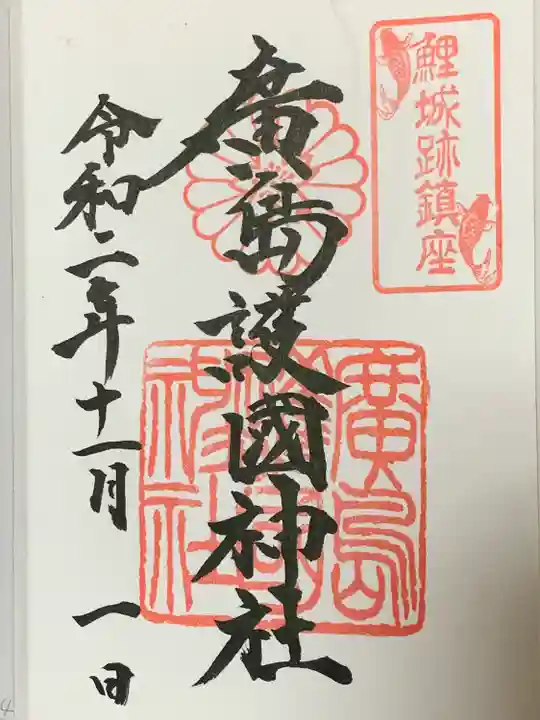 鯉城跡鎮座
廣島護國神社
廣島護國神社
令和二年十一月 一日
4